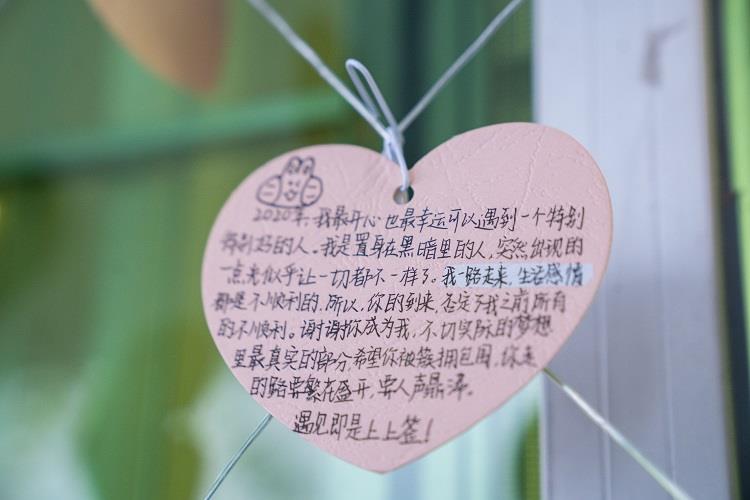 2020年,我最开心也最幸运可以遇到一个特别
特别好的人。我是置身在黑暗里的人,突然出现的
一点光似乎让一切都不一样了。我一路走来,生活感情
都是不顺利的,所以,你的到来,否定了我之前所有
的不顺利。谢谢你成为我,不切实际的梦想
里最真实的部分,希望你被簇拥包围,你走
的路要繁花盛开,要人声鼎沸。
遇见即是上上签!